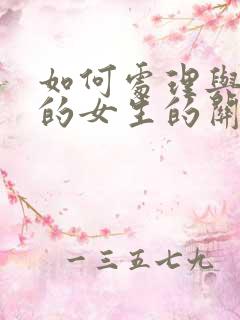 如何處理與
的女生的關
一三五七九